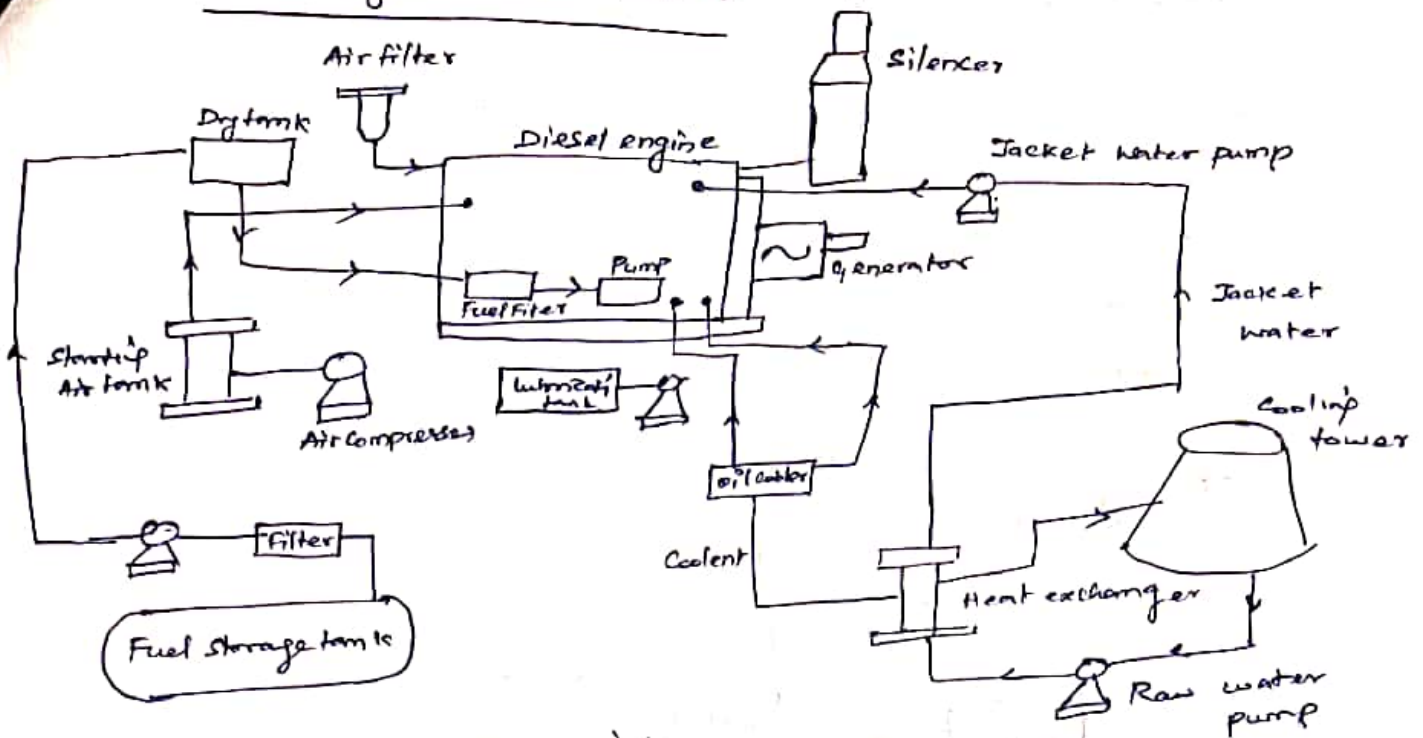 Air filter
Silencer
Dry tank
Diesel engine
Jacket water pump
Pump
Generator
Fuel Filer
Jacket
water
Starting
Air tank
Air Compresser
tank
oil cooler
Cooling
tower
Filter
Coolent
Heat exchanger
Fuel storage tank
Raw water
pump